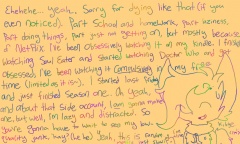 Ehehehe... Yeah... Sorry for dying like that (if you
even noticed). Part School and homework, part laziness,
Part doing things, part just not getting on, but mostly because
of Netflix. I've been obsessively watching it on my kindle. I finished
watching Soul Eater and started watching Doctor Who and got
obsessed, I've been watching it Continuously in my free
time (limited as it is-). I started last
and just finished season one. Oh yeah,
and about that side account, I am gonna make
one, but well, I'm lazy and distracted. So
you're gonna have to wait to see my
quality junk, kay? (he he) Yeah, this is